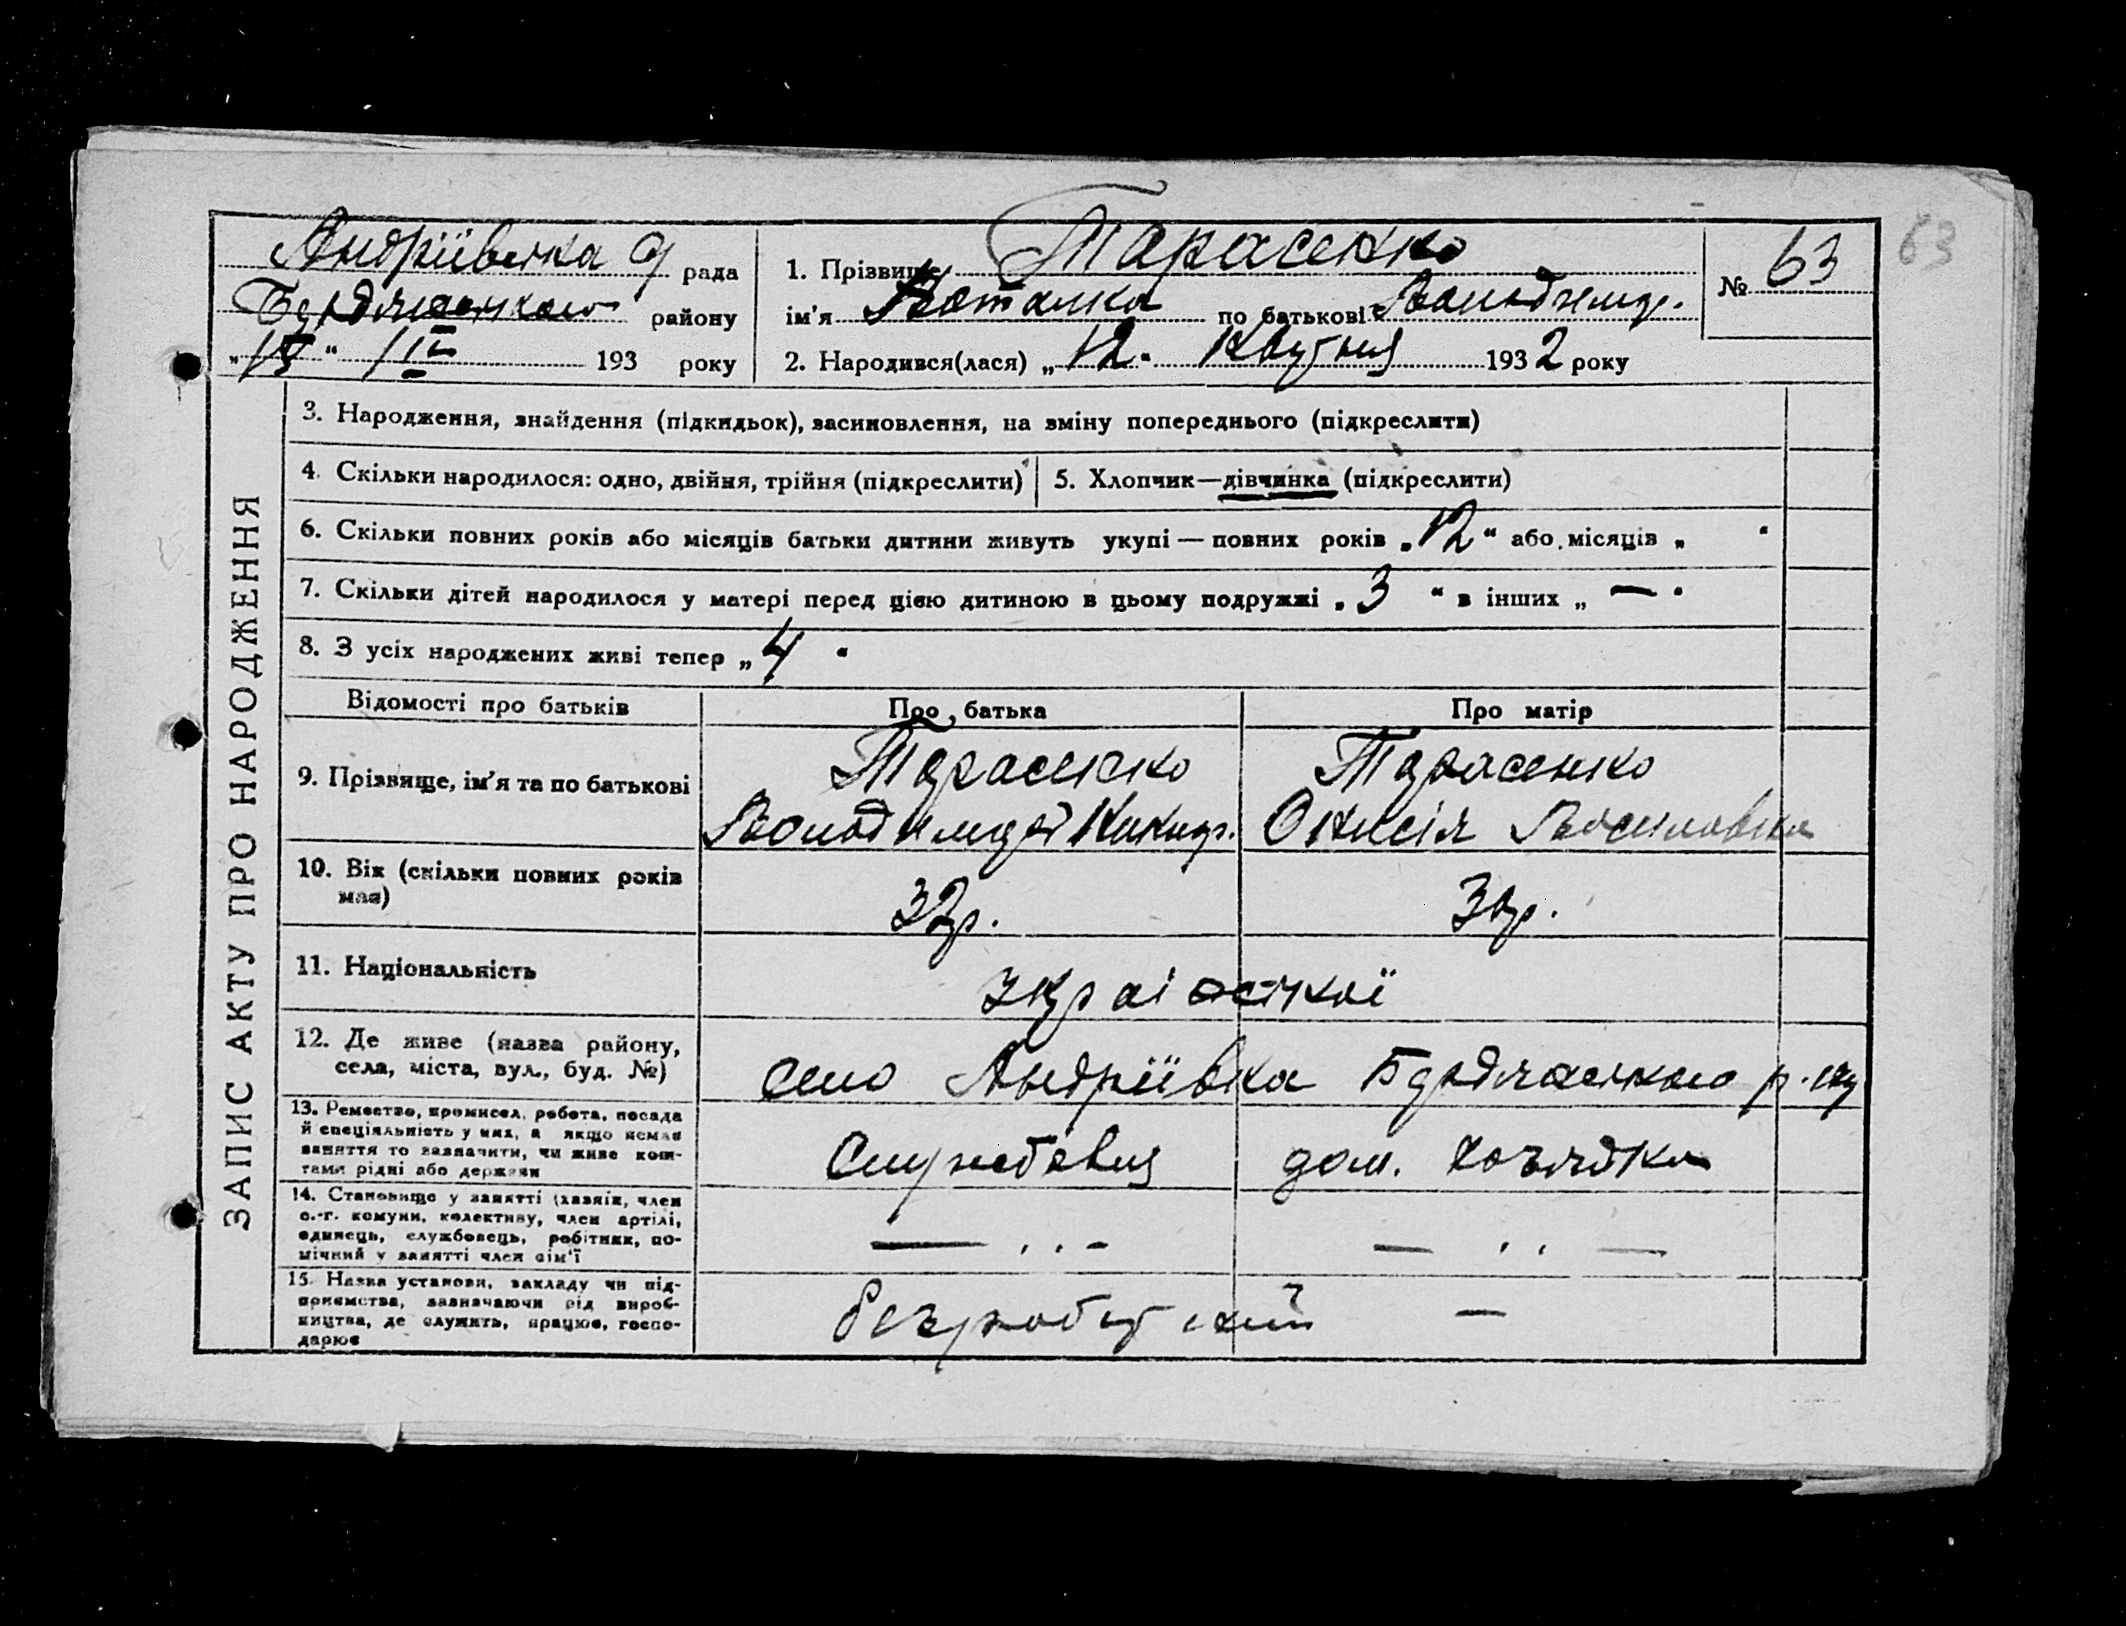 Андріївська
рада
Бердянського району
„15“ IV 193 року
1. Прізвище Тарасенко
ім'я Наталка по батькові Володимир.
2. Народився(лася) „12“ Квітня 1932 року
№ 63
63
ЗАПИС АКТУ ПРО НАРОДЖЕННЯ
3. Народження, знайдення (підкидьок), васиновлення, на зміну попереднього (підкреслити)
4. Скільки народилося: одно, двійня, трійня (підкреслити)
5. Хлопчик—дівчинка (підкреслити)
6. Скільки повних років або місяців батьки дитини живуть укупі — повних років „12“ або місяців „ “
7. Скільки дітей народилося у матері перед цією дитиною в цьому подружжі „3“ в інших „—“
8. З усіх народжених живі тепер „4“
Відомості про батьків
Про батька
Про матір
9. Прізвище, ім'я та по батькові
Тарасенко
Володимир
Тарасенко
Оксія Василовна
10. Вік (скільки повних років має)
32р.
11. Національність
української
12. Де живе (назва району,
села, міста, вул., буд. №)
село Андріївка Бердянського р-ну
13. Ремество, промисел, робота, посада
й спеціяльність у них, а якщо немає
заняття то зазначити, чи живе кош-
тами рідні або держави
Службовця
дом. хозяйка
14. Становище у занятті (хазяїн, член
с.-г. комуни, колективу, член артілі,
одинець, службовець, робітник, по-
мічний у занятті член сім'ї
— „ —
— „ —
15. Назва установи, закладу чи під-
приємства, зазначаючи рід вироб-
ництва, де служить, працює, госпо-
дарює
безробітний
—